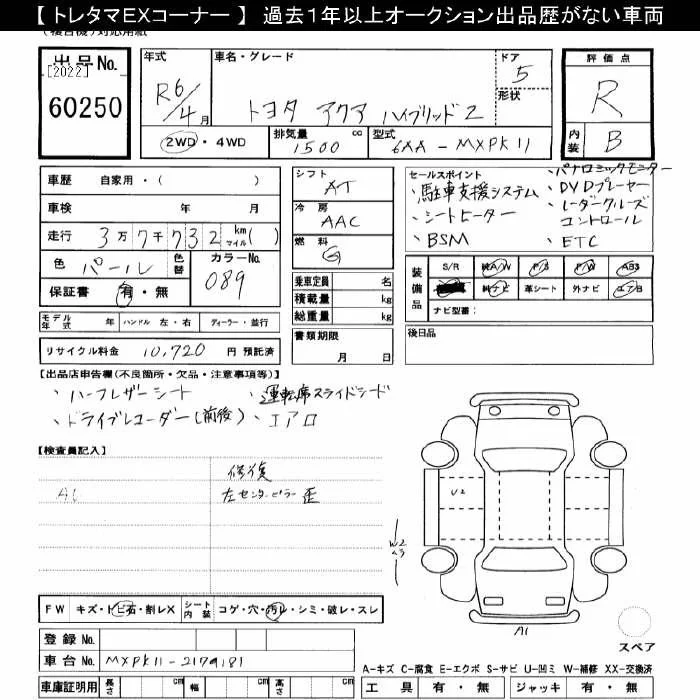 【 トレタマEXコーナー 】 過去1年以上オークション出品歴がない車両
(複合機)対応用紙
出品No.
[2022]
60250
年式
R6/4月
車名・グレード
トヨタ アクア ハイブリッドZ
ドア
5
形状
2WD・4WD
排気量
1500 cc
型式
6AA - MXPK11
評価点
R
内装
B
車歴 自家用・( )
車検 年 月
走行 3万7千732 km マイル( )
色 パール
色替
カラーNo.
089
保証書 有・無
モデル年式 年 ハンドル 左・右 ディーラー・並行
リサイクル料金 10,720 円 預託済
シフト
AT
冷房
AAC
燃料
G
乗車定員 名
積載量 kg
総重量 kg
書類期限
月 日
セールスポイント
・駐車支援システム
・シートヒーター
・BSM
・パノラミックモニター
・DVDプレーヤー
・レーダークルーズコントロール
・ETC
装備品
S/R 純A/W P/S P/W ABS
純ナビ 革シート 外ナビ エアB
ナビ型番:
後日品
【出品店申告欄(不良箇所・欠品・注意事項等)】
、ハーフレザーシート 、運転席スライドシード
、ドライブレコーダー(前後) 、エアロ
【検査員記入】
修復
A1 左センターピラー歪
U2
W2
A1
FW キズ・トビ石・割レX
シート内装 コゲ・穴・汚レ・シミ・破レ・スレ
登録 No.
車台 No. MXPK11-2179181
車庫証明用 長さ cm 幅 cm 高さ cm
スペア
A-キズ C-腐食 E-エクボ S-サビ U-凹ミ W-補修 XX-交換済
工具 有・無 ジャッキ 有・無